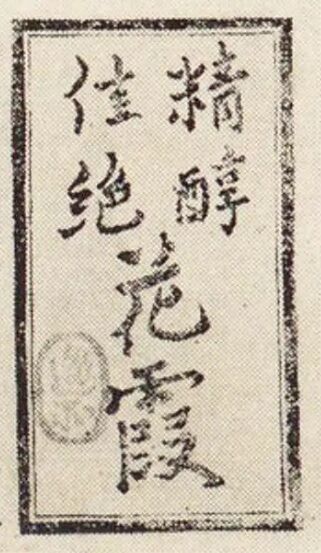 精醇
佳絶
花霞